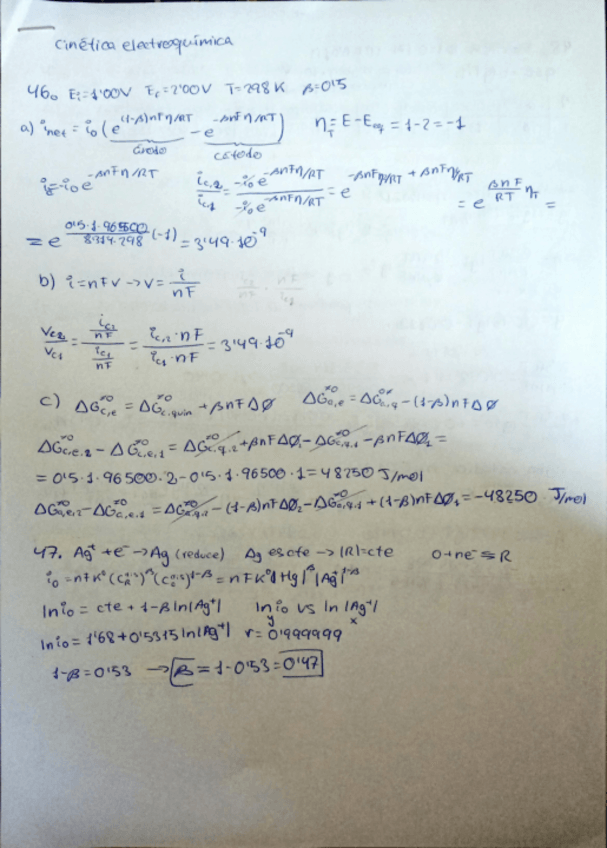 Cinética electroquímica
46. Ei=1'00V Ef=2'00V T=298K β=0'5
a) i_net = i₀(e^((1-β)nFη/RT) - e^(-βnFη/RT)) η_T=E-Eeq=1-2=-1
ánodo cátodo
i_c=-i₀e^(-βnFη/RT) i_c,2/i_c,1 = -i₀e^(-βnFη/RT)/-i₀e^(-βnFη/RT) = e^(-βnFη/RT + βnFη/RT) = e^(βnF/RT η_T) =
= e^(0'5·1·96500/8'314·298 (-1)) = 3'49·10⁻⁹
b) i=nFv → v= i/nF
v_c2/v_c1 = (i_c2/nF)/(i_c1/nF) = i_c,2·nF/i_c1·nF = 3'49·10⁻⁹
c) ΔG≠⁰_c,e = ΔG≠⁰_c,quim + βnFΔØ ΔG≠⁰_a,e = ΔG≠⁰_a,q - (1-β)nFΔØ
ΔG≠⁰_c,e,2 - ΔG≠⁰_c,e,1 = ΔG≠⁰_c,q,2 + βnFΔØ₂ - ΔG≠⁰_c,q,1 - βnFΔØ₁ =
= 0'5·1·96500·2-0'5·1·96500·1 = 48250 J/mol
ΔG≠⁰_a,e,2 - ΔG≠⁰_a,e,1 = ΔG≠⁰_a,q,2 - (1-β)nFΔØ₂ - ΔG≠⁰_a,q,1 + (1-β)nFΔØ₁ = -48250 J/mol
47. Ag⁺ + e⁻ → Ag (reduce) Ag es cte → |R|=cte O+ne⁻ ⇌ R
i₀ = nFK⁰ (C_R)^β (C_O)^(1-β) = nFK⁰ |Hg|^β |Ag⁺|^(1-β)
ln i₀ = cte + 1-β ln|Ag⁺| ln i₀ vs ln |Ag⁺|
y x
ln i₀ = 1'68 + 0'5315 ln|Ag⁺| r = 0'999999
1-β = 0'53 → β = 1-0'53 = 0'47